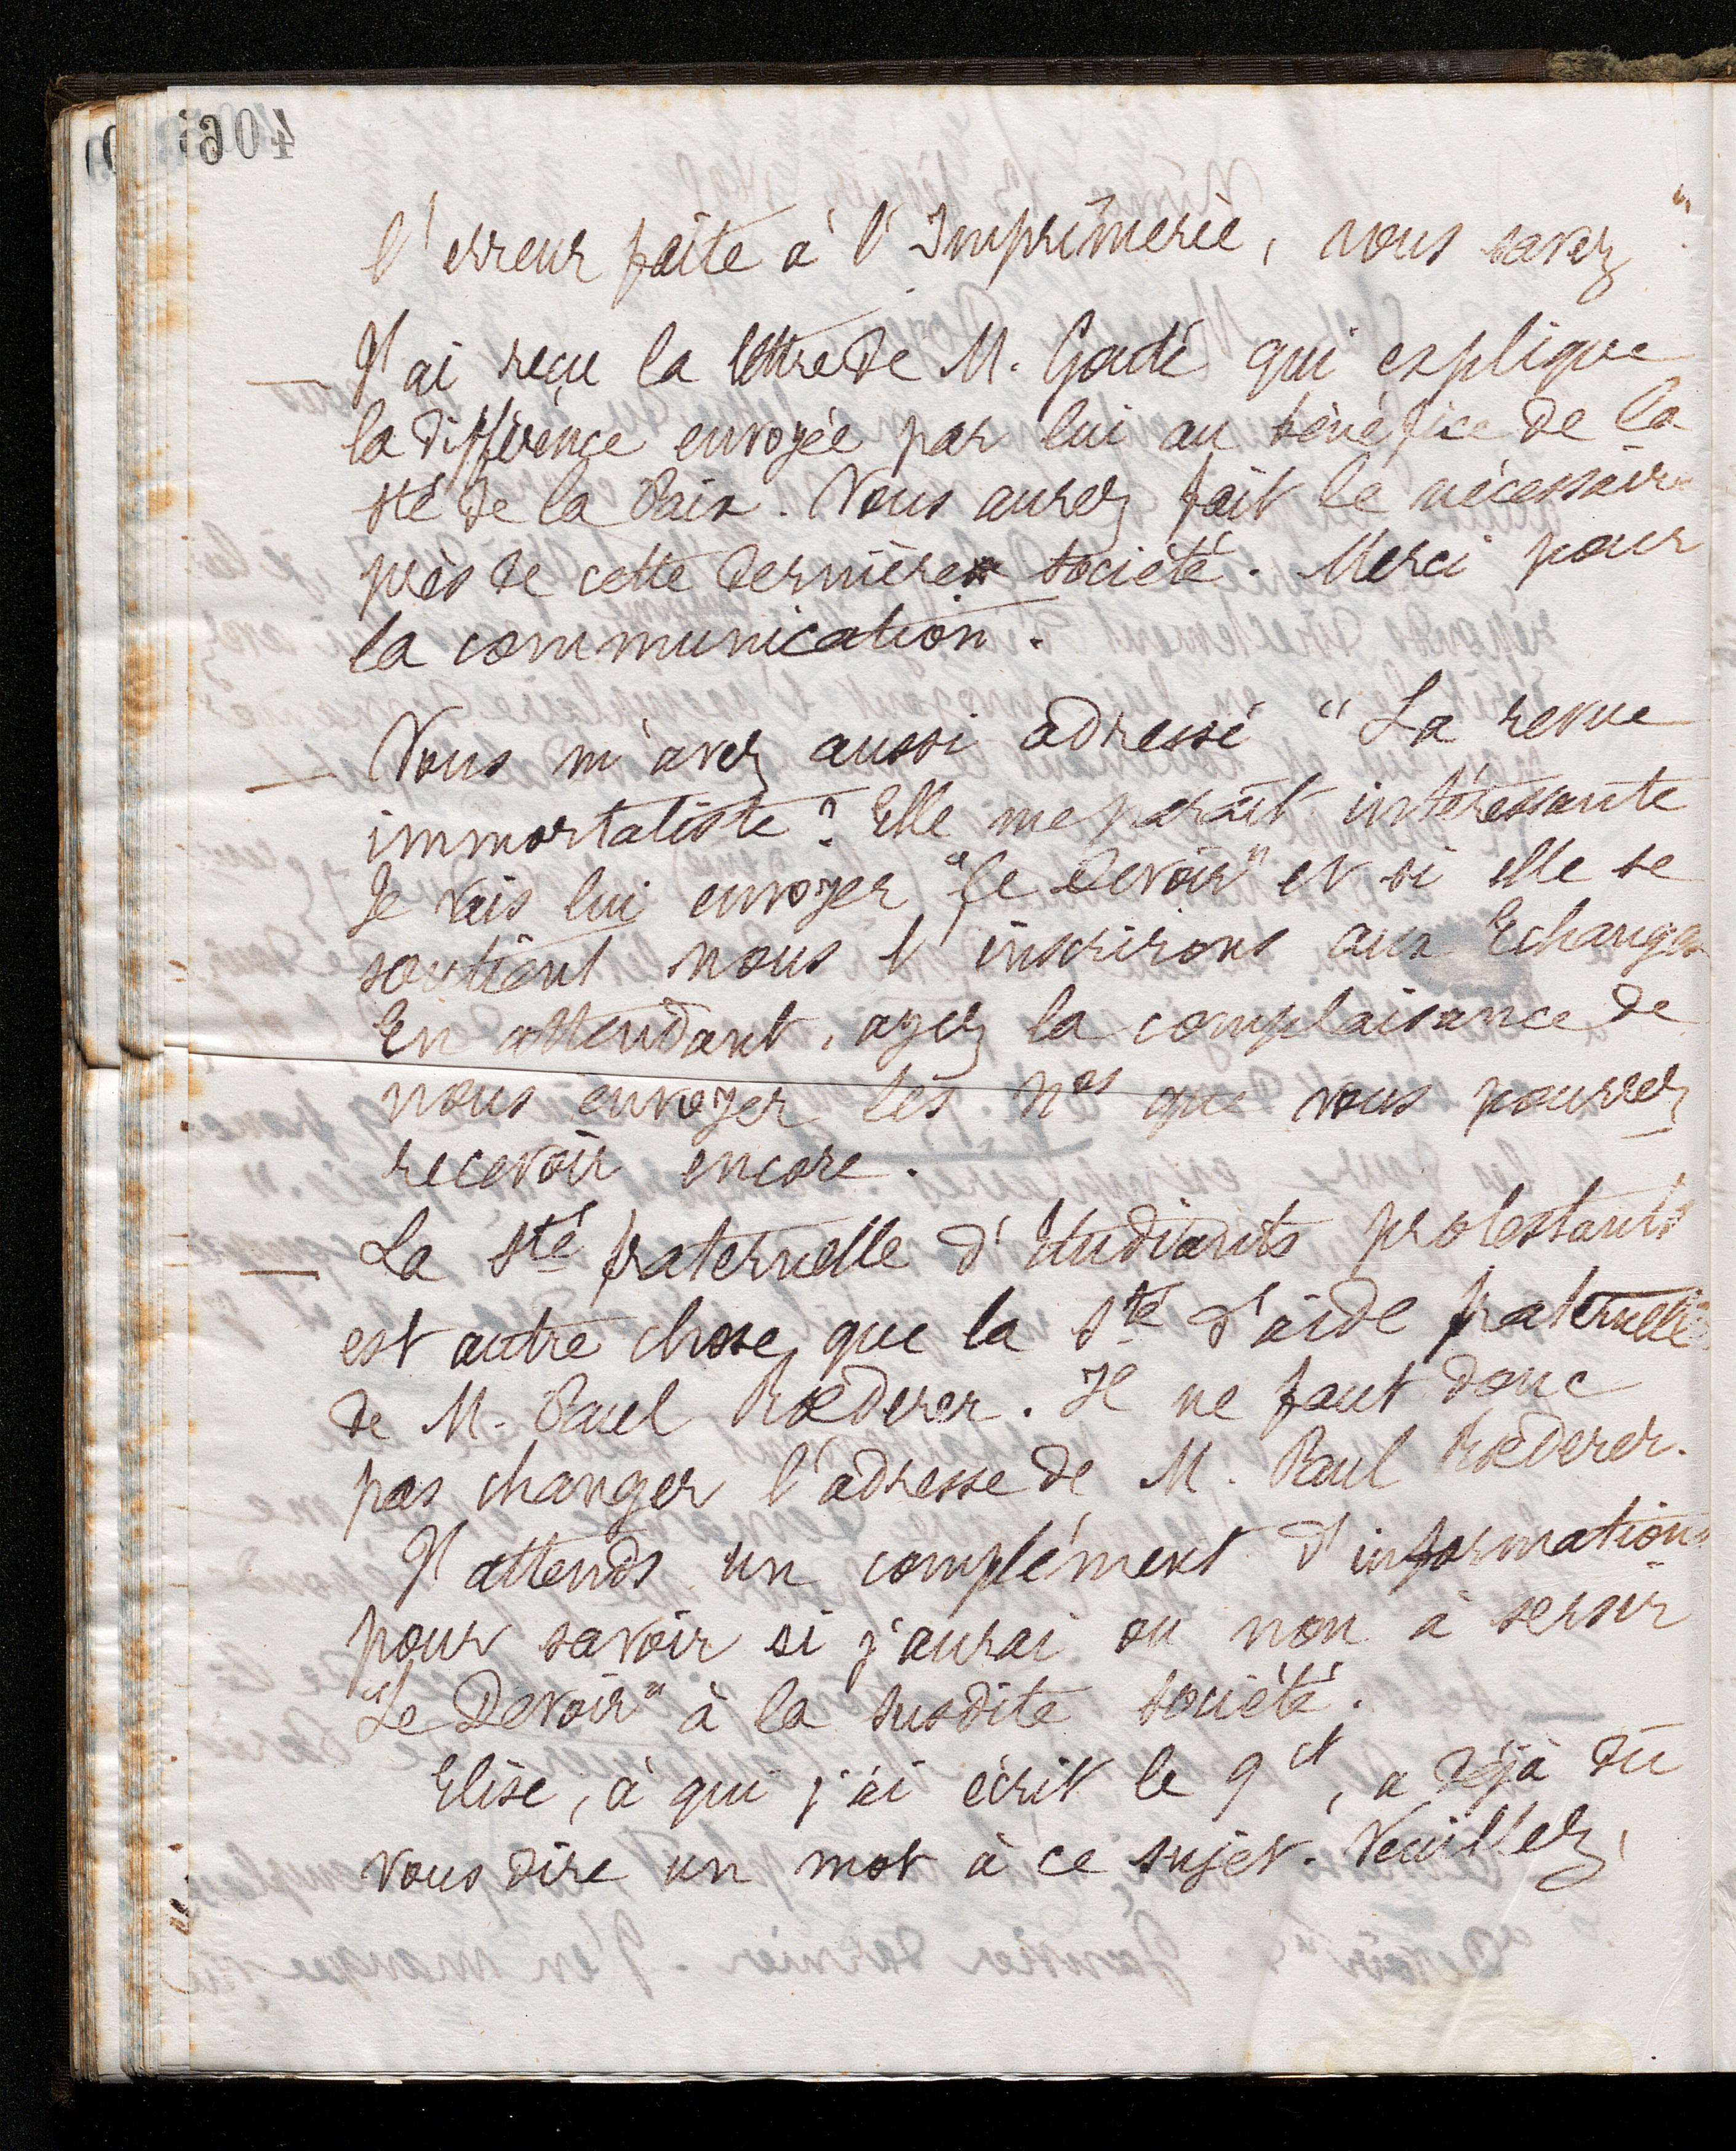 406
l'erreur faite à l'Imprimerie, vous savez
— J'ai reçu la lettre de M. Godé qui explique
la différence envoyée par lui au bénéfice de la
sté de la Paix. Vous aurez fait le nécessaire
près de cette dernière société. Merci pour
la communication.
— Vous m'avez aussi adressé "La revue
immortaliste". Elle me parait intéressante
Je vais lui envoyer "Le Devoir" et si elle se
soutient nous l'inscrirons aux Echanges
En attendant, ayez la complaisance de
nous envoyer les nos que vous pourrez
recevoir encore.
— La Sté fraternelle d'Etudiants protestants
est autre chose que la Sté d'aide fraternelle
de M. Paul Rœderer. Il ne faut donc
pas changer l'adresse de M. Paul Rœderer.
J'attends un complément d'informations
pour savoir si j'aurai ou non à servir
"Le Devoir" à la susdite société.
Elise, à qui j'ai écrit le 9 ct, a déjà dû
vous dire un mot à ce sujet. Veuillez,